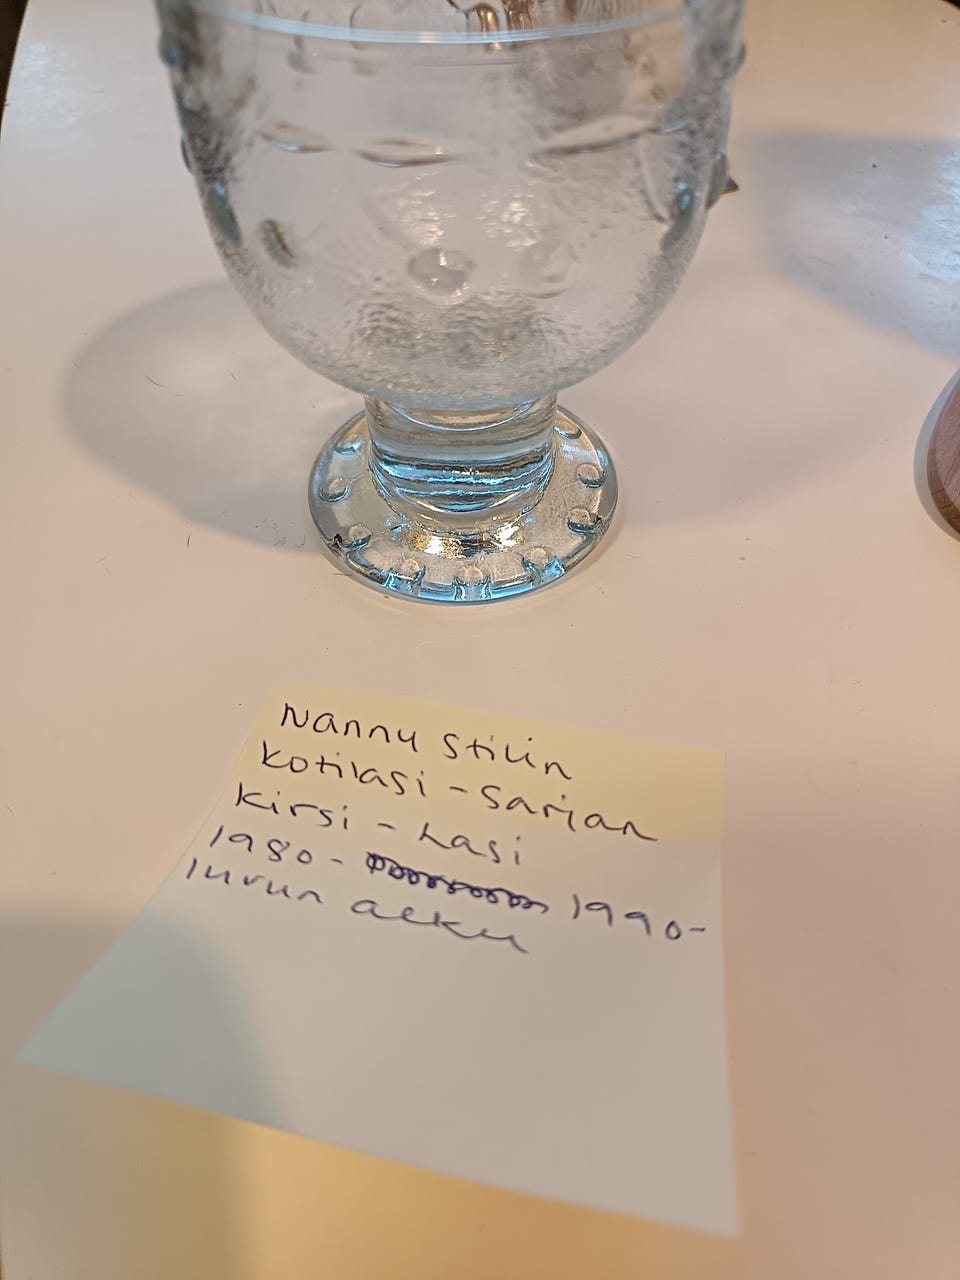 Nanny Stillin
Kotilasi - Sarjan
Kirsi - Lasi
1980 - 1990-
luvun alku